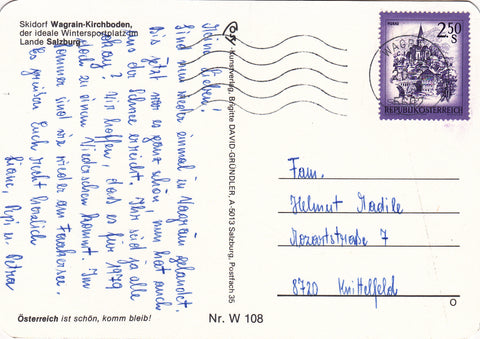 Skidorf Wagrain-Kirchboden,
der ideale Wintersportplatz im
Lande Salzburg
Meine Lieben!
Sind nun wieder einmal in Wagrain gelandet.
Bis jetzt war es ganz schön, nun hat auch
uns der Schnee erreicht. Ihr seid ja alle
okay? Wir hoffen, dass es für 1979
doch zu einem Wiedersehen kommt. Im
Sommer sind wir wieder am Faakersee.
Es grüßen Euch recht herzlich
Pepi u. Petra
Österreich ist schön, komm bleib!
Kunstverlag, Brigitte DAVID-GRÜNDLER, A-5013 Salzburg, Postfach 35
Nr. W 108
2.50
S
REPUBLIK ÖSTERREICH
Fam.
Helmut Radile
Mozartstraße 7
8720 Knittelfeld